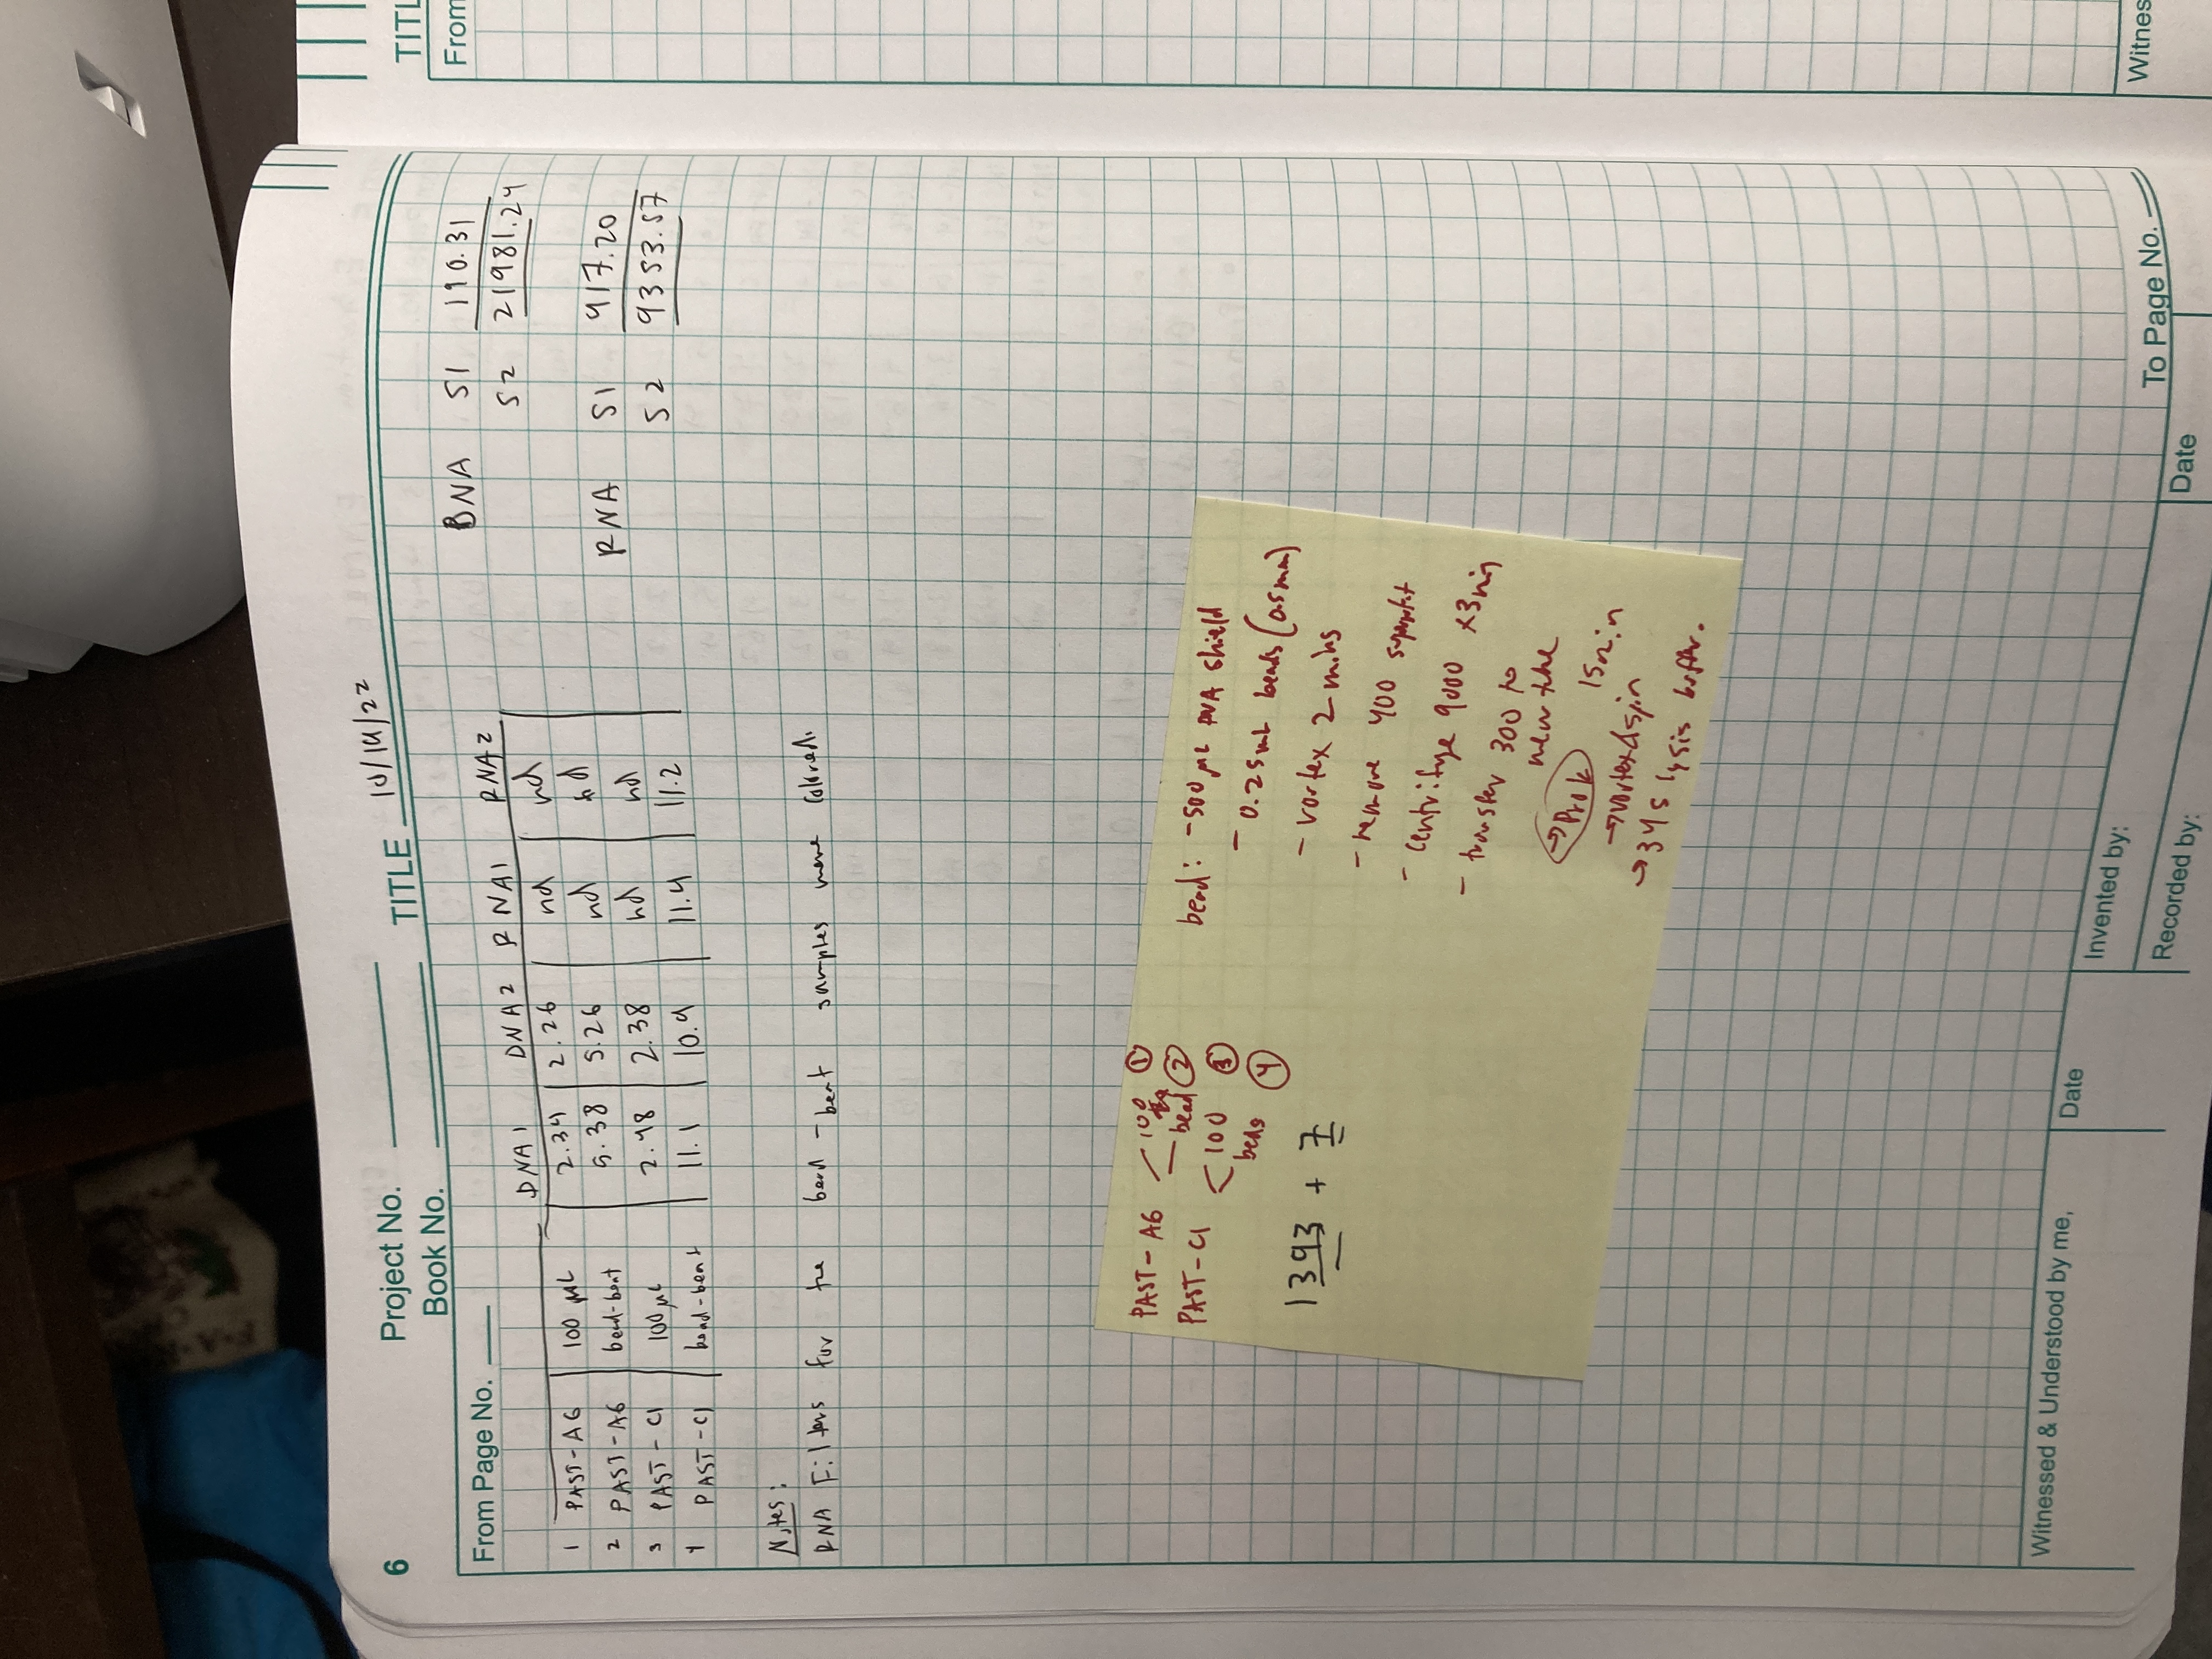 6
Project No.
Book No.
TITLE 10/14/22
From Page No.
DNA1 DNA2 RNA1 RNA2
1 PAST-A6 100 µL 2.34 2.26 nd nd
2 PAST-A6 bead-beat 5.38 5.26 nd nd
3 PAST-C1 100µL 2.48 2.38 nd nd
4 PAST-C1 bead-beat 11.1 10.9 11.4 11.2
DNA S1 190.31
S2 21981.24
RNA S1 417.20
S2 9353.57
Notes:
RNA Filters for the bead-beat samples more colored.
PAST-A6 100 ①
bead ②
PAST-C1
100 ③
beads ④
1393 + 7
bead: -500 µL DNA shield
- 0.25mL beads (0.5mm)
- vortex 2 mins
- remove 400
- centrifuge 9000 x3min
- transfer 300 to
new tube
→Prok 15min
→vortex&spin
→345 lysis buffer.
Witnessed & Understood by me,
Date
Invented by:
Recorded by:
To Page No.
Date
TITL
From
Witnes